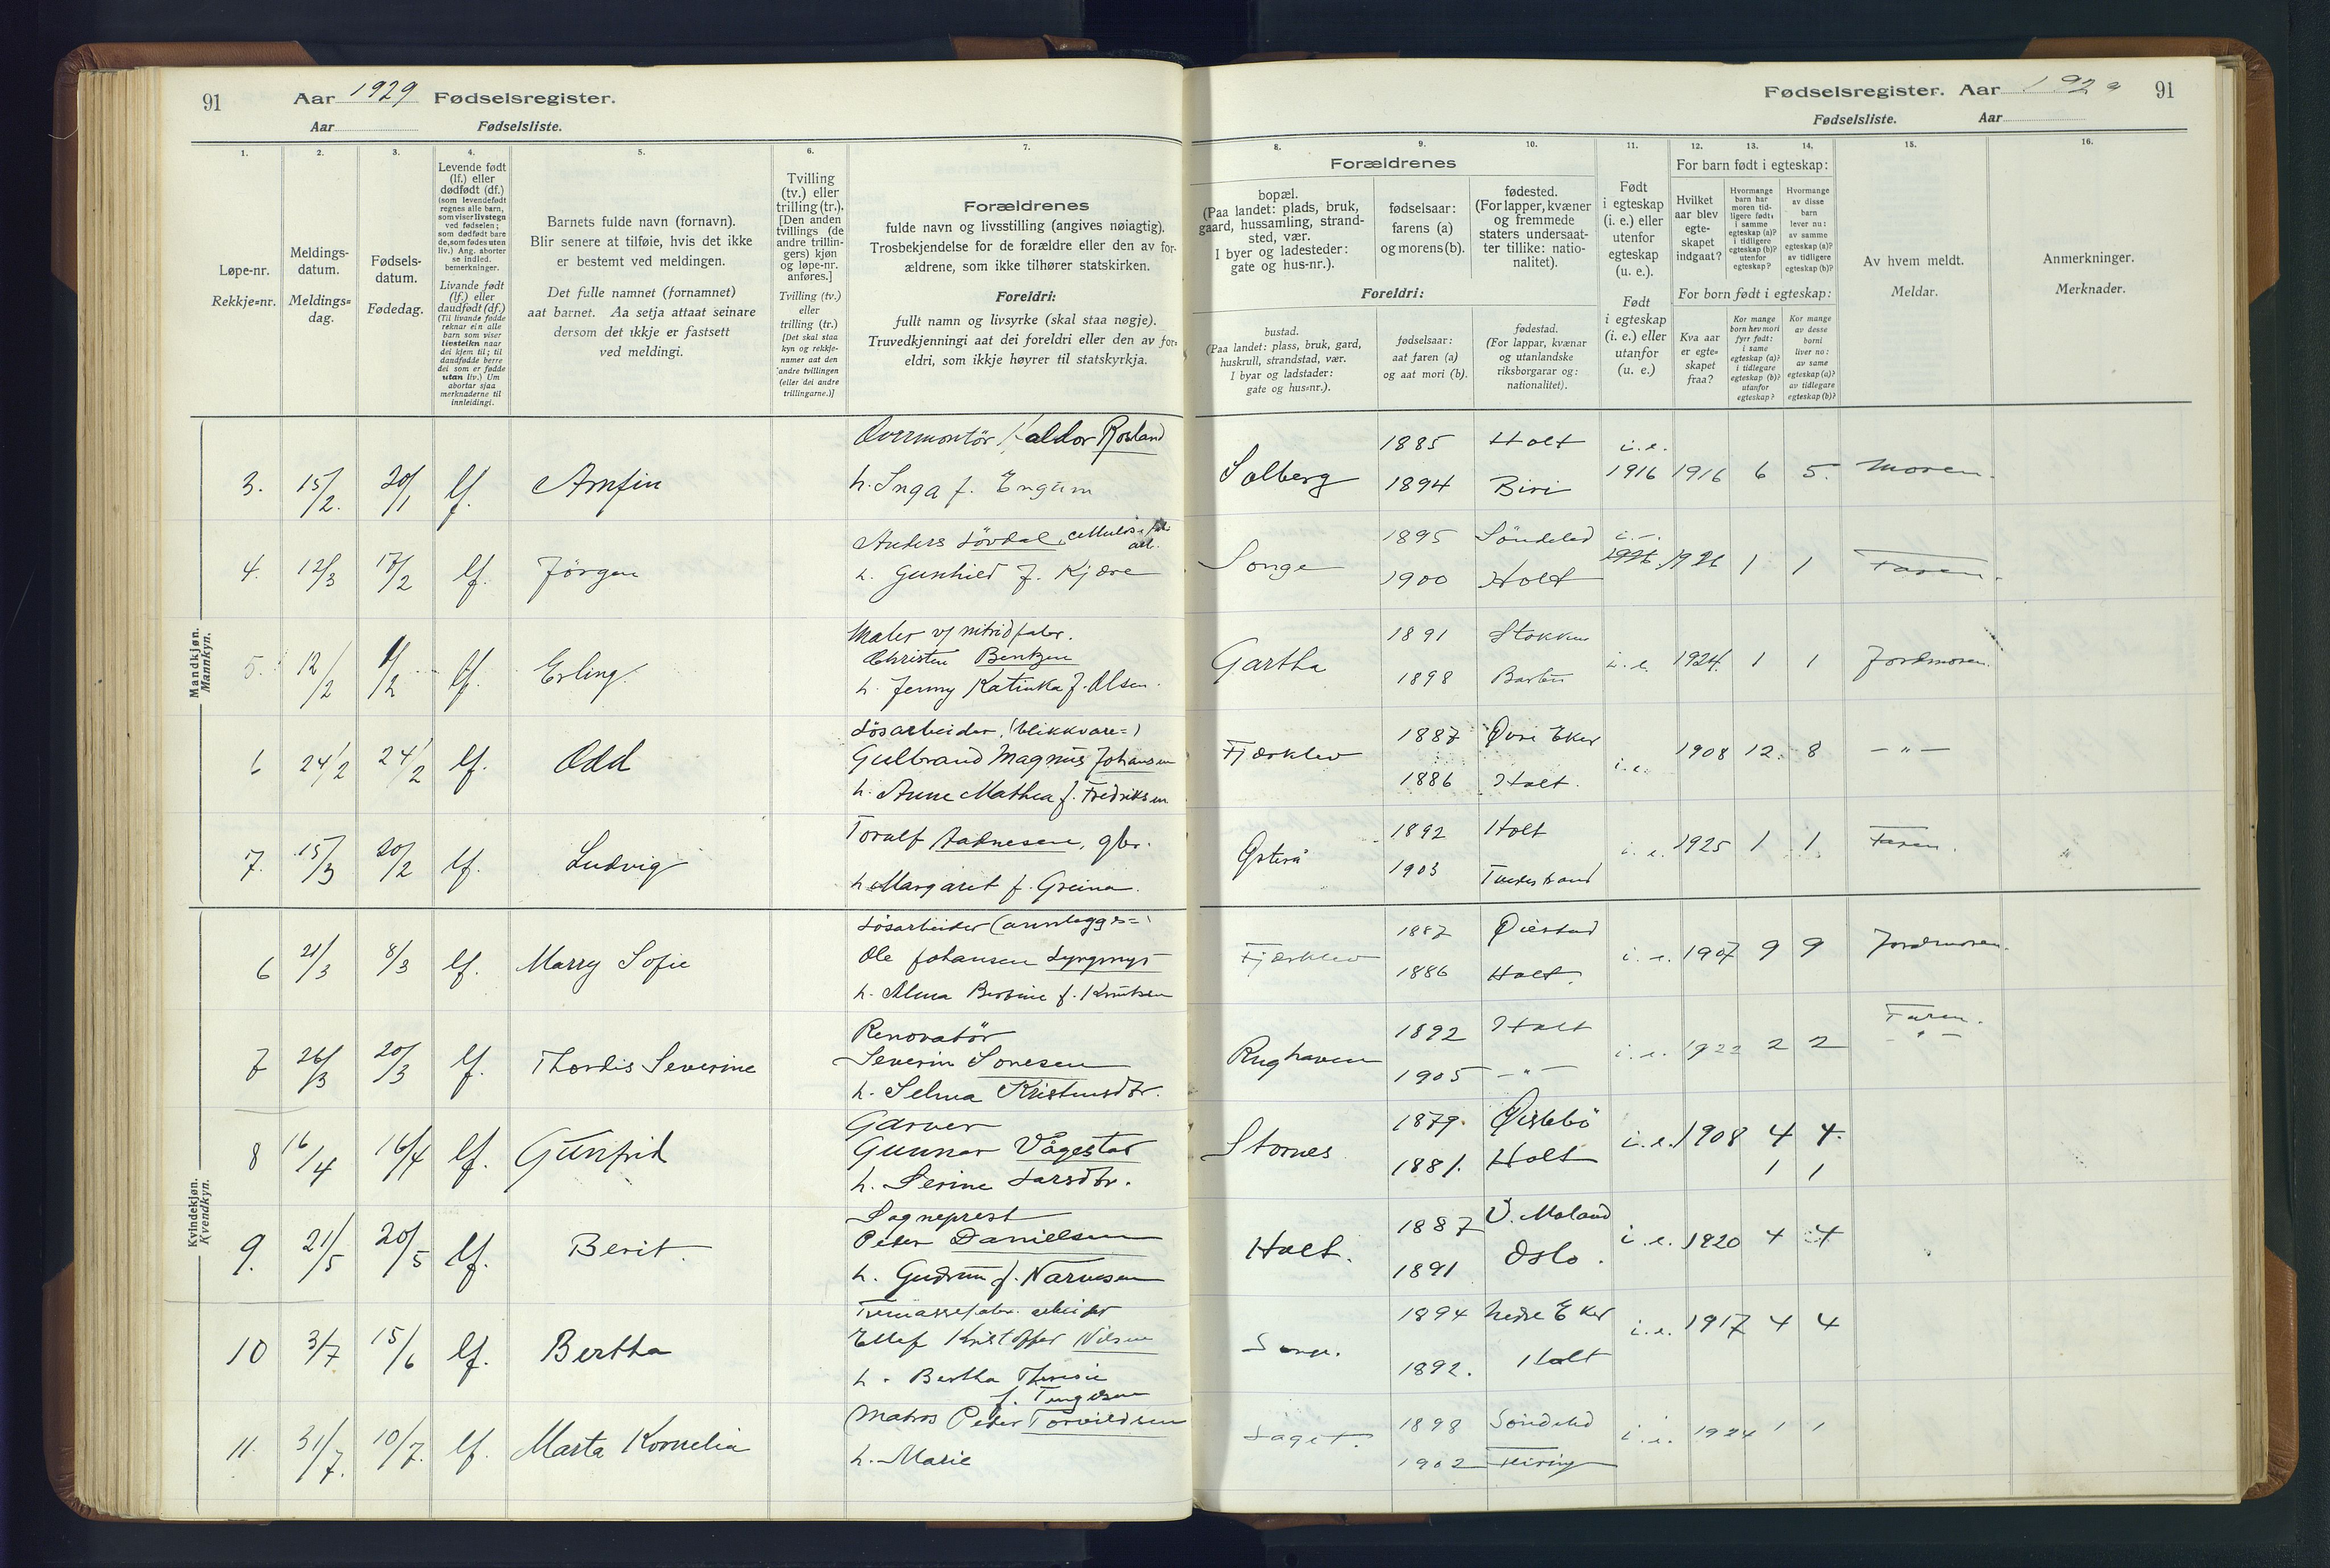 91 Aar 1929 Fødselsregister.
Aar Fødselsliste.
Fødselsregister. Aar 1929 91
Fødselsliste. Aar
1. 2. 3. 4. 5. 6. 7.
Løpe-nr.
Rekkje-nr.
Meldings-
datum.
Meldings-
dag.
Fødsels-
datum.
Fødedag.
Levende født
(lf.) eller
dødfødt (df.)
(som levendefødt
regnes alle barn,
som viser livstegn
ved fødselen;
som dødfødt bare
de, som fødes uten
liv.) Ang. aborter
se indled.
bemerkninger.
Livande født
(lf.) eller
daudfødt (df.)
(Til livande fødde
reknar ein alle
barn som viser
livsteikn naar
dei kjem til; til
daudfødde berre
dei som er fødde
utan liv.) Um
abortar sjaa
merknaderne til
innleidingi.
Barnets fulde navn (fornavn).
Blir senere at tilføie, hvis det ikke
er bestemt ved meldingen.
Det fulle namnet (fornamnet)
aat barnet. Aa setja attaat seinare
dersom det ikkje er fastsett
ved meldingi.
Tvilling
(tv.) eller
trilling (tr.).
[Den anden
tvillings (de
andre trillin-
gers) kjøn
og løpe-nr.
anføres.]
Tvilling (tv.)
eller
trilling (tr.)
[Det skal staa
kyn og rekkje-
numer aat den
andre tvillingen
(eller dei andre
trillingarne.)]
Forældrenes
fulde navn og livsstilling (angives nøiagtig).
Trosbekjendelse for de forældre eller den av for-
ældrene, som ikke tilhører statskirken.
Foreldri:
fullt namn og livsyrke (skal staa nøgje).
Truvedkjenningi aat dei foreldri eller den av for-
eldri, som ikkje høyrer til statskyrkja.
8. 9. 10. 11. 12. 13. 14. 15. 16.
Forældrenes
bopæl.
(Paa landet: plads, bruk,
gaard, hussamling, strand-
sted, vær.
I byer og ladesteder:
gate og hus-nr.).
fødselsaar:
farens (a)
og morens (b).
fødested.
(For lapper, kvæner
og fremmede
staters undersaat-
ter tillike: natio-
nalitet).
Foreldri:
bustad.
(Paa landet: plass, bruk, gard,
huskrull, strandstad, vær.
I byar og ladstader:
gate og hus-nr.).
fødselsaar:
aat faren (a)
og aat mori (b).
fødestad.
(For lappar, kvænar
og utanlandske
riksborgarar og:
nationalitet).
Født
i egteskap
(i. e.) eller
utenfor
egteskap
(u. e.).
Født
i egteskap
(i. e.) eller
utanfor
(u. e.)
For barn født i egteskap:
Hvilket
aar blev
egte-
skapet
indgaat?
Hvormange
barn har
moren tid-
ligere født:
i samme
egteskap (a)?
i tidligere
egteskap (b)?
utenfor
egteskap?
Hvormange
av disse
barn
lever nu:
av samme
egteskap (a)?
av tidligere
egteskap (b)?
For born født i egteskap:
Kva aar
er egte-
skapet
fraa?
Kor mange
born hev mori
fyrr født:
i same
egteskap (a)?
i tidlegare
egteskap (b)?
utanfor
egteskap?
Kor mange
av desse
borni
liver no:
av same
egteskap (a)?
av tidlegare
egteskap (b)?
Av hvem meldt.
Meldar.
Anmerkninger.
Merknader.
Mandkjøn.
Mannkyn.
3. 15/2. 20/1 lf. Arnfin
Overmontör, Haldor Rosland
h. Inga f. Engum
Solberg 1885 Holt i.e.
1894 Biri 1916 1916 6 5. Moren.
4. 12/3 17/2 lf. Jörgen
Anders Lövdal,
h. Gunhild f. Kjære
Songe 1895 Söndeled
1900 Holt 1926 1926 1 1 Faren.
5. 12/2 1/2 lf. Erling
Maler v/ nitridfabr.
Christen Bentzen
h. Jenny Katinka f. Olsen.
Gartha 1891 Stokken
1898 Barbu i.e. 1924. 1 1 Jordmoren.
6 24/2 24/2 lf. Odd
Lösarbeider, (blikkvare=)
Gulbrand Magnus Johansen
h. Anne Mathea f. Fredriksen
Fjærklev 1887 Övre Eker
1886 Holt. i.e. 1908 12. 8 — " —
7. 15/3 20/2 lf. Ludvig
Toralf Aadnesen, gbr.
h. Margaret f. Greina.
Østerå 1892 Holt
1903 Tvedestrand i.e. 1925 1 1 Faren.
Kvindekjøn.
Kvendkyn.
6 21/3 8/3 lf. Marry Sofie
Lösarbeider (
Ole Johansen Lyngmyr
h. Alma Bertine f. Knutsen
Fjærklev 1887 Øiestad
1886 Holt. i.e. 1907 9 9 Jordmoren.
7 26/3 20/3 lf. Thordis Severine
Renovatör
Severin Sonesen
h. Selma Kristensdtr.
Rughaven 1892 Holt
1905 — " — i.e. 1922 2 2 Faren.
— " —
8 16/4 16/4 lf. Gunfrid
Garver
Gunnar Vågestad
h. Serine Larsdtr.
Stornes 1879. Øislebö
1881. Holt i.e. 1908 4 4.
1 1
9. 21/5 20/5 lf. Berit.
Sogneprest
Peder Danielsen
h. Gudrun f. Narvesen
Holt. 1887 Ö. Moland
1891 Oslo. i.e. 1920 4 4
10 3/7 15/6 lf. Bertha
Tremassefabr. arbeider
Ellef Kristoffer Nilsen
h. Bertha Theresie
f. Tengelsen
Songe. 1894 Nedre Eker
1892. Holt i.e. 1917 4 4
11. 31/7. 10/7. lf. Marta Kornelia
Matros Peder Torvildsen
h. Marie
Laget. 1898 Söndeled
1902 i.e. 1924 1 1